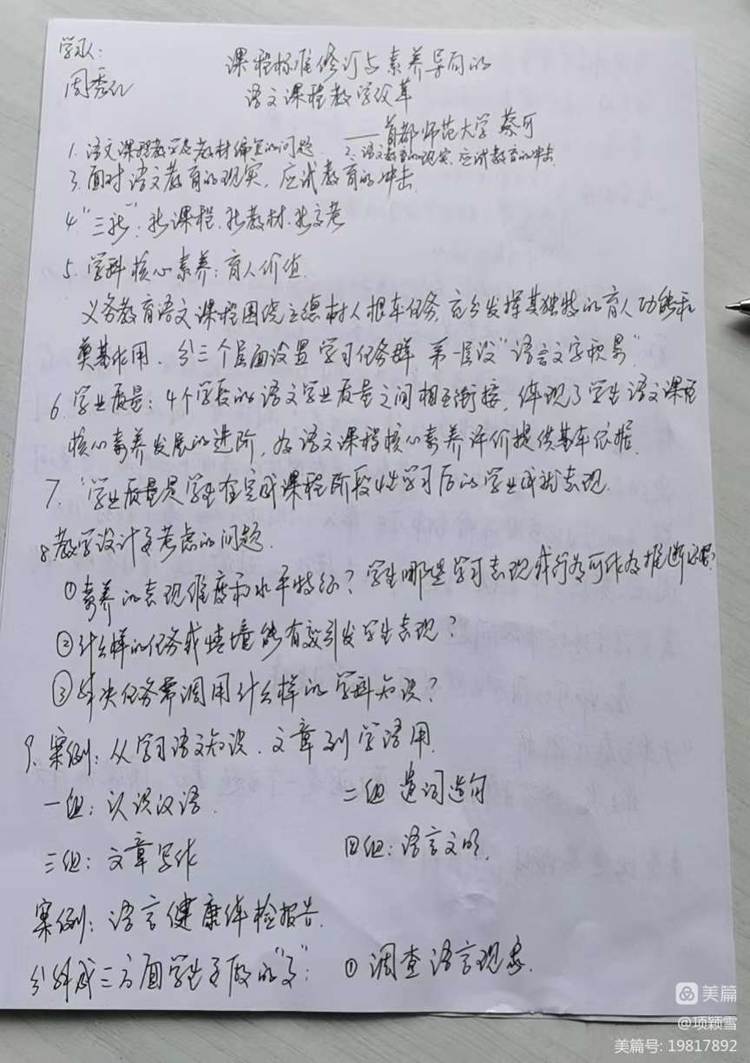 课程标准修订与素养导向的
语文课程教学改革
——首都师范大学 蔡可
1. 语文课程教学及教材编写的问题. 2. 语文教育的现实, 应试教育的冲击.
3. 面对语文教育的现实, 应试教育的冲击.
4 "三新": 新课程. 新教材. 新高考
5. 学科核心素养: 育人价值.
义务教育语文课程围绕立德树人根本任务, 充分发挥其独特的育人功能和
奠基作用. 分三个层面设置学习任务群 第一层设"语言文字积累"
6. 学业质量: 4个学段的语文学业质量之间相互衔接, 体现了学生语文课程
核心素养发展的进阶, 为语文课程核心素养评价提供基本依据.
7. 学业质量是学生在完成课程阶段性学习后的学业成就表现.
8 教学设计要考虑的问题.
① 素养的表现维度和水平特征? 学生哪些学习表现或行为可作为推断证据?
② 什么样的任务或情境能有效引发学生表现?
③ 解决任务需调用什么样的学科知识?
9. 案例: 从学习语文知识. 文章到学语用.
一组: 认识汉语. 二组 遣词造句
三组: 文章写作 四组: 语言文明.
案例: 语言健康体检报告.
分解成三方面学生要做的"事": ① 调查语言现象.
美篇
@项颖雪
美篇号: 19817892